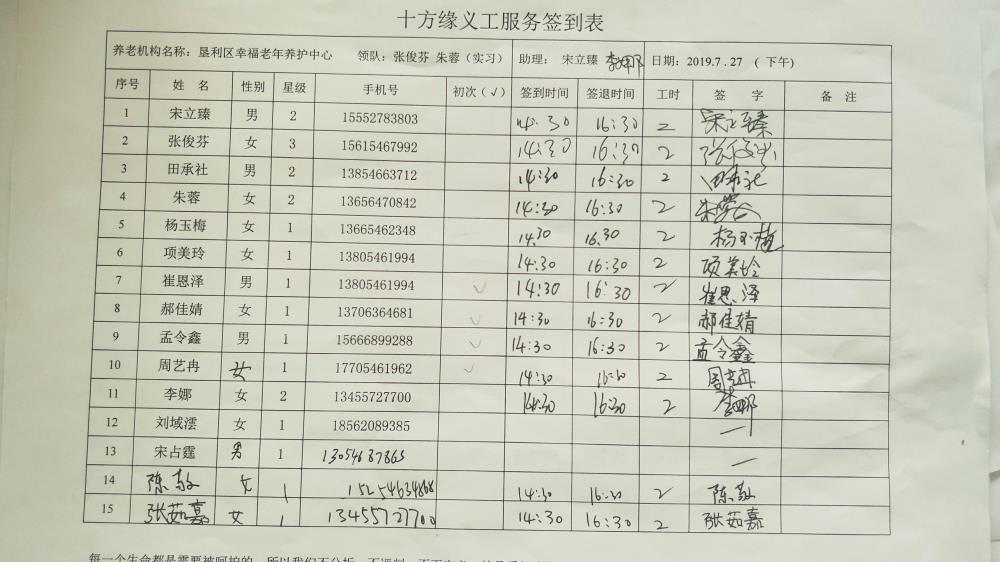 十方缘义工服务签到表
养老机构名称：垦利区幸福老年养护中心 领队：张俊芬 朱蓉（实习） 助理：宋立臻 李娜 日期：2019.7.27 （下午）
序号 姓名 性别 星级 手机号 初次（√） 签到时间 签退时间 工时 签字 备注
1 宋立臻 男 2 15552783803 14:30 16:30 2 宋立臻
2 张俊芬 女 3 15615467992 14:30 16:30 2 张俊芬
3 田承社 男 2 13854663712 14:30 16:30 2 田承社
4 朱蓉 女 2 13656470842 14:30 16:30 2 朱蓉
5 杨玉梅 女 1 13665462348 14.30 16.30 2 杨玉梅
6 项美玲 女 1 13805461994 14:30 16:30 2 项美玲
7 崔恩泽 男 1 13805461994 √ 14:30 16:30 2 崔恩泽
8 郝佳婧 女 1 13706364681 √ 14:30 16:30 2 郝佳婧
9 孟令鑫 男 1 15666899288 √ 14:30 16:30 2 孟令鑫
10 周艺冉 女 1 17705461962 √ 14:30 16:30 2 周艺冉
11 李娜 女 2 13455727700 14:30 16:30 2 李娜
12 刘域澐 女 1 18562089385 —
13 宋占霆 男 1 13054687865 —
14 陈敏 女 1 14:30 16:30 2 陈敏
15 张茹嘉 女 1 13455727700 14:30 16:30 2 张茹嘉
每一个生命都是需要被呵护的，所以我们不分析、不评判